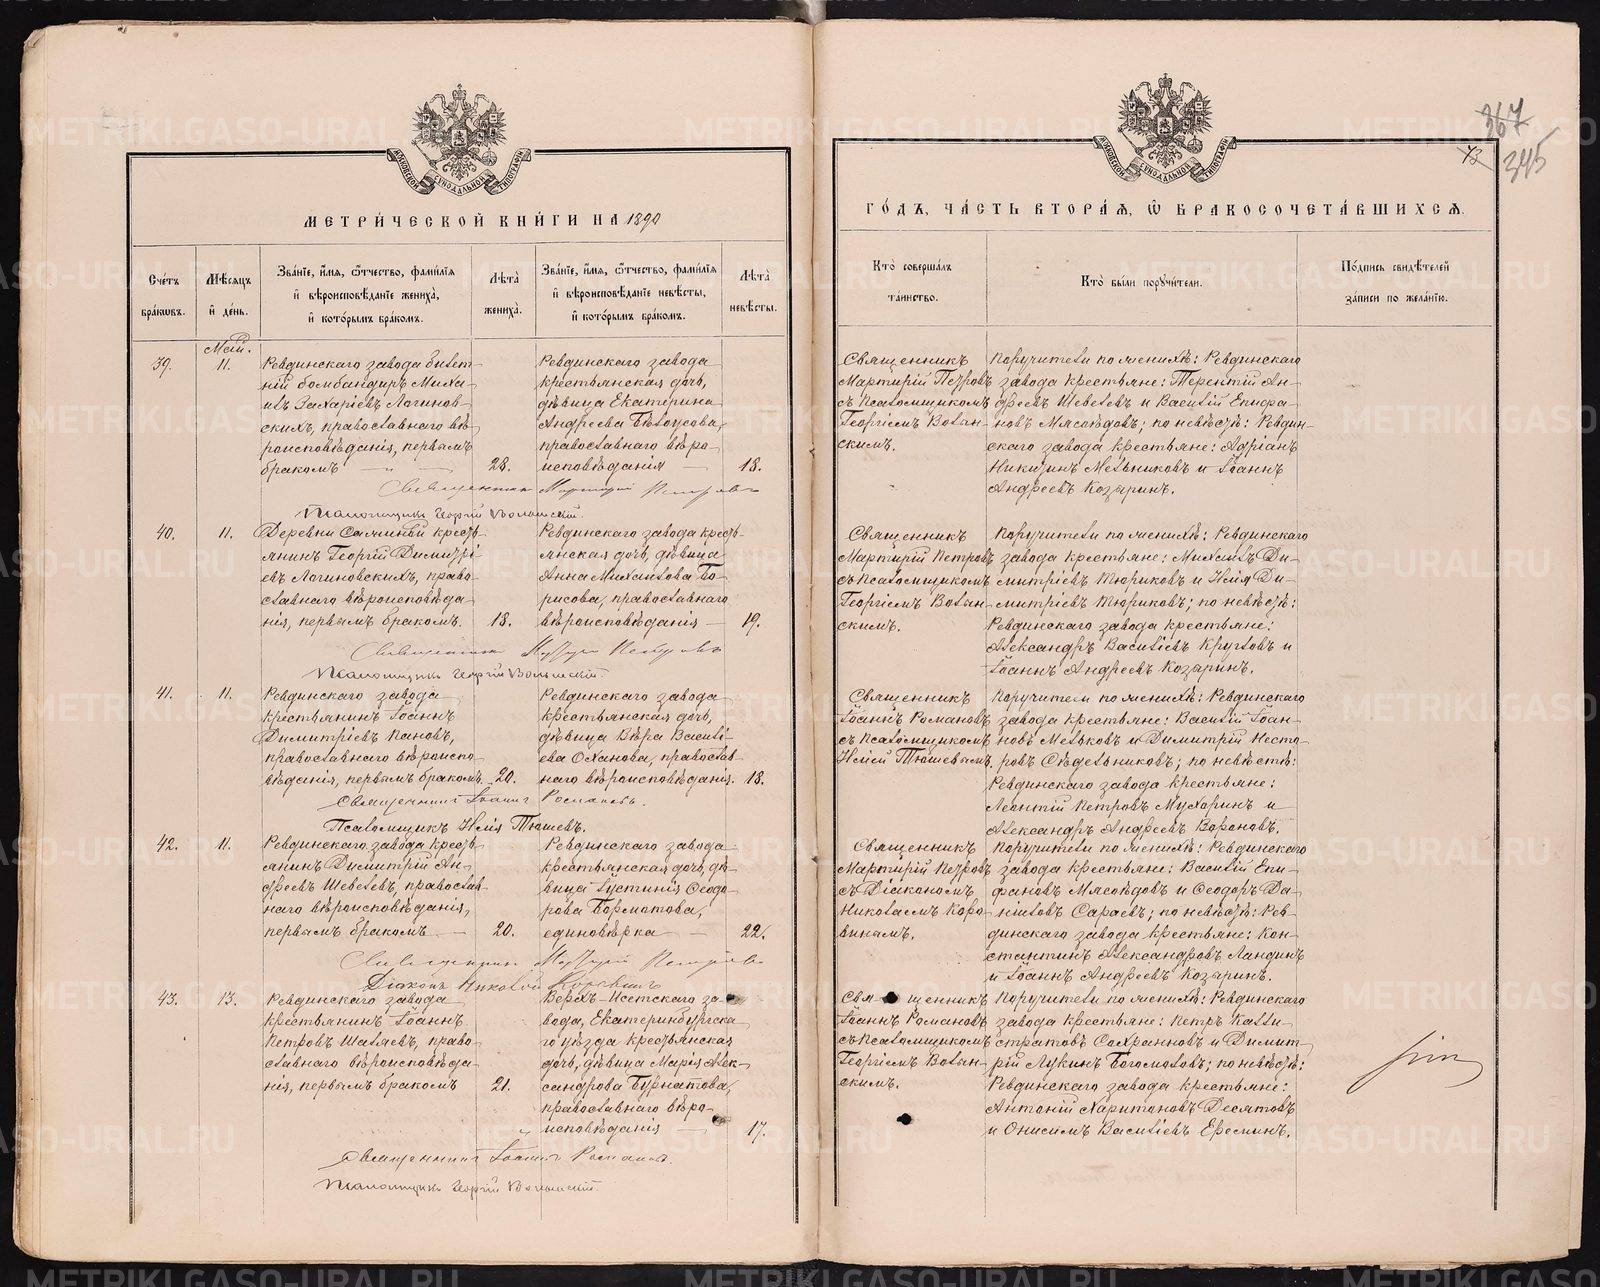 МЕТРИЧЕСКОЙ КНИГИ НА 1890
ГОДЪ, ЧАСТЬ ВТОРАЯ, Ѡ БРАКОСОЧЕТАВШИХСЯ.
367
345
МОСКОВСКОЙ СѴНОДАЛЬНОЙ ТИПОГРАФІИ
МОСКОВСКОЙ СѴНОДАЛЬНОЙ ТИПОГРАФІИ
Счетъ браковъ.
Мѣсяцъ и день.
Званіе, имя, ѿчество, фамилія и вѣроисповѣданіе жениха, и которымъ бракомъ.
Лѣта жениха.
Званіе, имя, ѿчество, фамилія и вѣроисповѣданіе невѣсты, и которымъ бракомъ.
Лѣта невѣсты.
Кто совершалъ таинство.
Кто были поручители.
Подпись свидѣтелей записи по желанію.
39.
Май.
11.
Ревдинскаго завода билет-
ный бомбандиръ Миха-
илъ Захаріевъ Логинов-
скихъ, православнаго вѣ-
роисповѣданія, первымъ
бракомъ
28.
Ревдинскаго завода
крестьянская дочь,
дѣвица Екатерина
Андреева Бѣлоусова,
православнаго вѣро-
исповѣданія
18.
Священникъ
Мартирій Петровъ
съ Псаломщикомъ
Георгіемъ Волын-
скимъ.
Поручители по женихѣ: Ревдинскаго
завода крестьяне: Терентій Ан-
дреевъ Шевелевъ и Василій Епифа-
новъ Мясоѣдовъ; по невѣстѣ: Ревдин-
скаго завода крестьяне: Адріанъ
Никитинъ Мельниковъ и Іоаннъ
Андреевъ Козыринъ.
Священникъ Мартирій Петровъ
Псаломщикъ Георгій Волынскій.
40.
11.
Деревни Крестья-
янинъ Георгій Димитрі-
евъ Логиновскихъ, право-
славнаго вѣроисповѣда-
нія, первымъ бракомъ.
18.
Ревдинскаго завода кресть-
янская дочь, дѣвица
Анна Михаилова Бо-
рисова, православнаго
вѣроисповѣданія
19.
Священникъ
Мартирій Петровъ
съ Псаломщикомъ
Георгіемъ Волын-
скимъ.
Поручители по женихѣ: Ревдинскаго
завода крестьяне: Михаилъ Ди-
митріевъ Тюриковъ и Илія Ди-
митріевъ Тюриковъ; по невѣстѣ:
Ревдинскаго завода крестьяне:
Александръ Василіевъ Кругловъ и
Іоаннъ Андреевъ Козыринъ.
Священникъ Мартирій Петровъ
Псаломщикъ Георгій Волынскій.
41.
11.
Ревдинскаго завода
крестьянинъ Іоаннъ
Димитріевъ Пановъ,
православнаго вѣроиспо-
вѣданія, первымъ бракомъ.
20.
Ревдинскаго завода
крестьянская дочь,
дѣвица Вѣра Васили-
ева Оханова, православ-
наго вѣроисповѣданія.
18.
Священникъ
Іоаннъ Романовъ
съ Псаломщикомъ
Иліей Тюшевымъ.
Поручители по женихѣ: Ревдинскаго
завода крестьяне: Василій Іоан-
новъ Мельковъ и Димитрій Несто-
ровъ Сѣдельниковъ; по невѣстѣ:
Ревдинскаго завода крестьяне:
Леонтій Петровъ Мухоринъ и
Александръ Андреевъ Вороновъ.
Священникъ Іоаннъ Романовъ.
Псаломщикъ Илія Тюшевъ.
42.
11.
Ревдинскаго завода кресть-
янинъ Димитрій Ан-
дреевъ Шевелевъ, православ-
наго вѣроисповѣданія,
первымъ бракомъ
20.
Ревдинскаго завода
крестьянская дочь, дѣ-
вица Іустинія Ѳеодо-
рова Борматова,
единовѣрка
22.
Священникъ
Мартирій Петровъ
съ Діакономъ
Николаемъ Коро-
винымъ.
Поручители по женихѣ: Ревдинскаго
завода крестьяне: Василій Епи-
фановъ Мясоѣдовъ и Ѳеодоръ Да-
ніиловъ Сараевъ; по невѣстѣ: Рев-
динскаго завода крестьяне: Кон-
стантинъ Александровъ Ландинъ
и Іоаннъ Андреевъ Козыринъ.
Священникъ Мартирій Петровъ
Діаконъ Николай Коровинъ
43.
13.
Ревдинскаго завода
крестьянинъ Іоаннъ
Петровъ Шаляевъ, право-
славнаго вѣроисповѣда-
нія, первымъ бракомъ
21.
Верхъ-Исетскаго за-
вода, Екатеринбургска-
го уѣзда крестьянская
дочь, дѣвица Марія Алек-
сандрова Бурматова,
православнаго вѣро-
исповѣданія
17.
Священникъ
Іоаннъ Романовъ
съ Псаломщикомъ
Георгіемъ Волын-
скимъ.
Поручители по женихѣ: Ревдинскаго
завода крестьяне: Петръ Калли-
стратовъ Сохранновъ и Димит-
рій Лукинъ Богомоловъ; по невѣстѣ:
Ревдинскаго завода крестьяне:
Антоній Харитоновъ Десятовъ
и Онисимъ Василіевъ Ереминъ.
Священникъ Іоаннъ Романовъ.
Псаломщикъ Георгій Волынскій.
METRIKI.GASO-URAL.RU